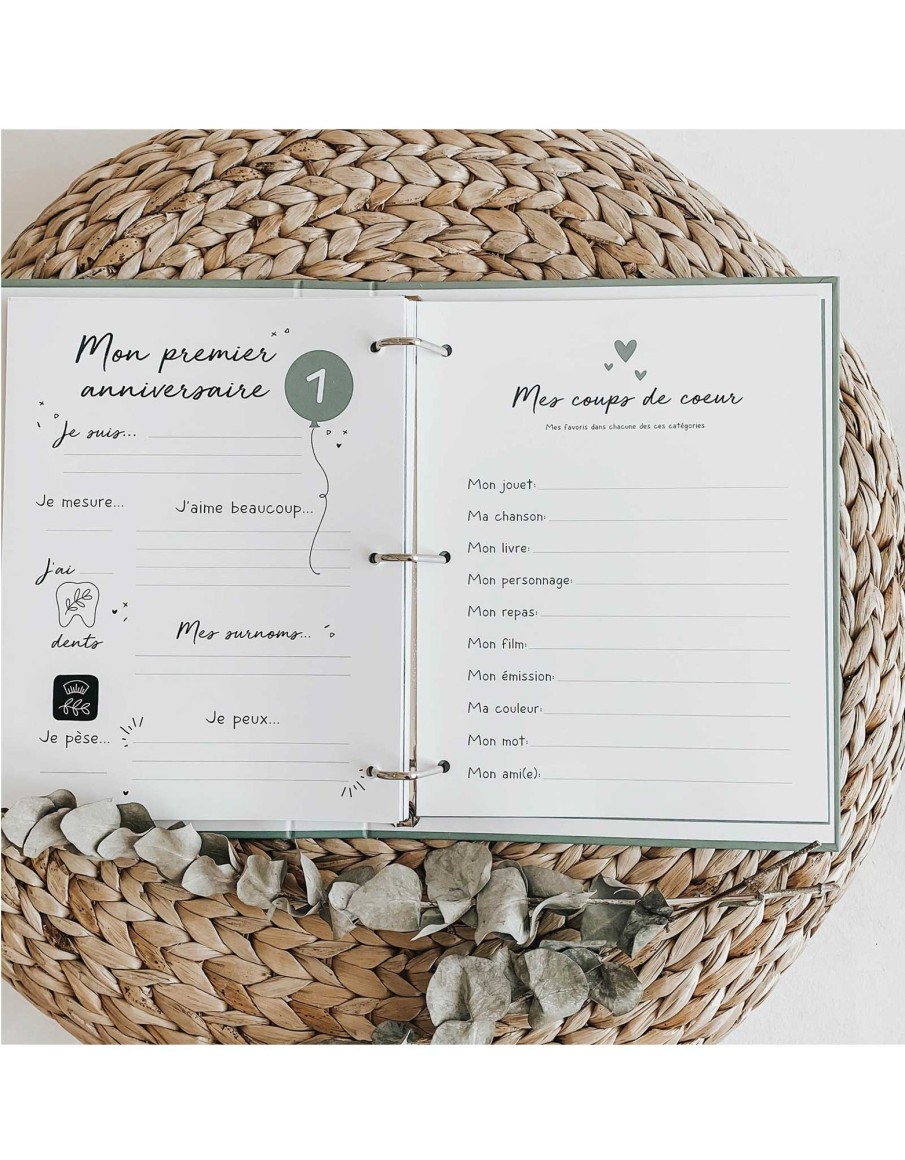 Mon premier
anniversaire
1
Je suis...
Je mesure...
J'aime beaucoup...
J'ai
dents
Mes surnoms...
Je pèse...
Je peux...
Mes coups de coeur
Mes favoris dans chacune des ces catégories.
Mon jouet:
Ma chanson:
Mon livre:
Mon personnage:
Mon repas:
Mon film:
Mon émission:
Ma couleur:
Mon mot:
Mon ami(e):